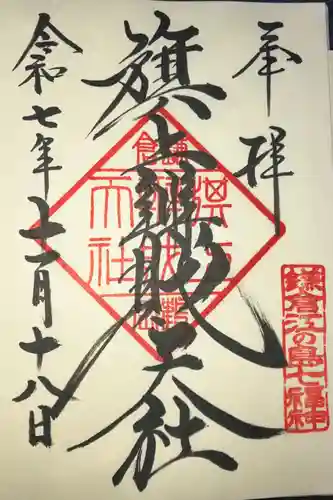 奉拝
旗上辨財天社
令和七年十一月十八日
鎌倉江の島七福神